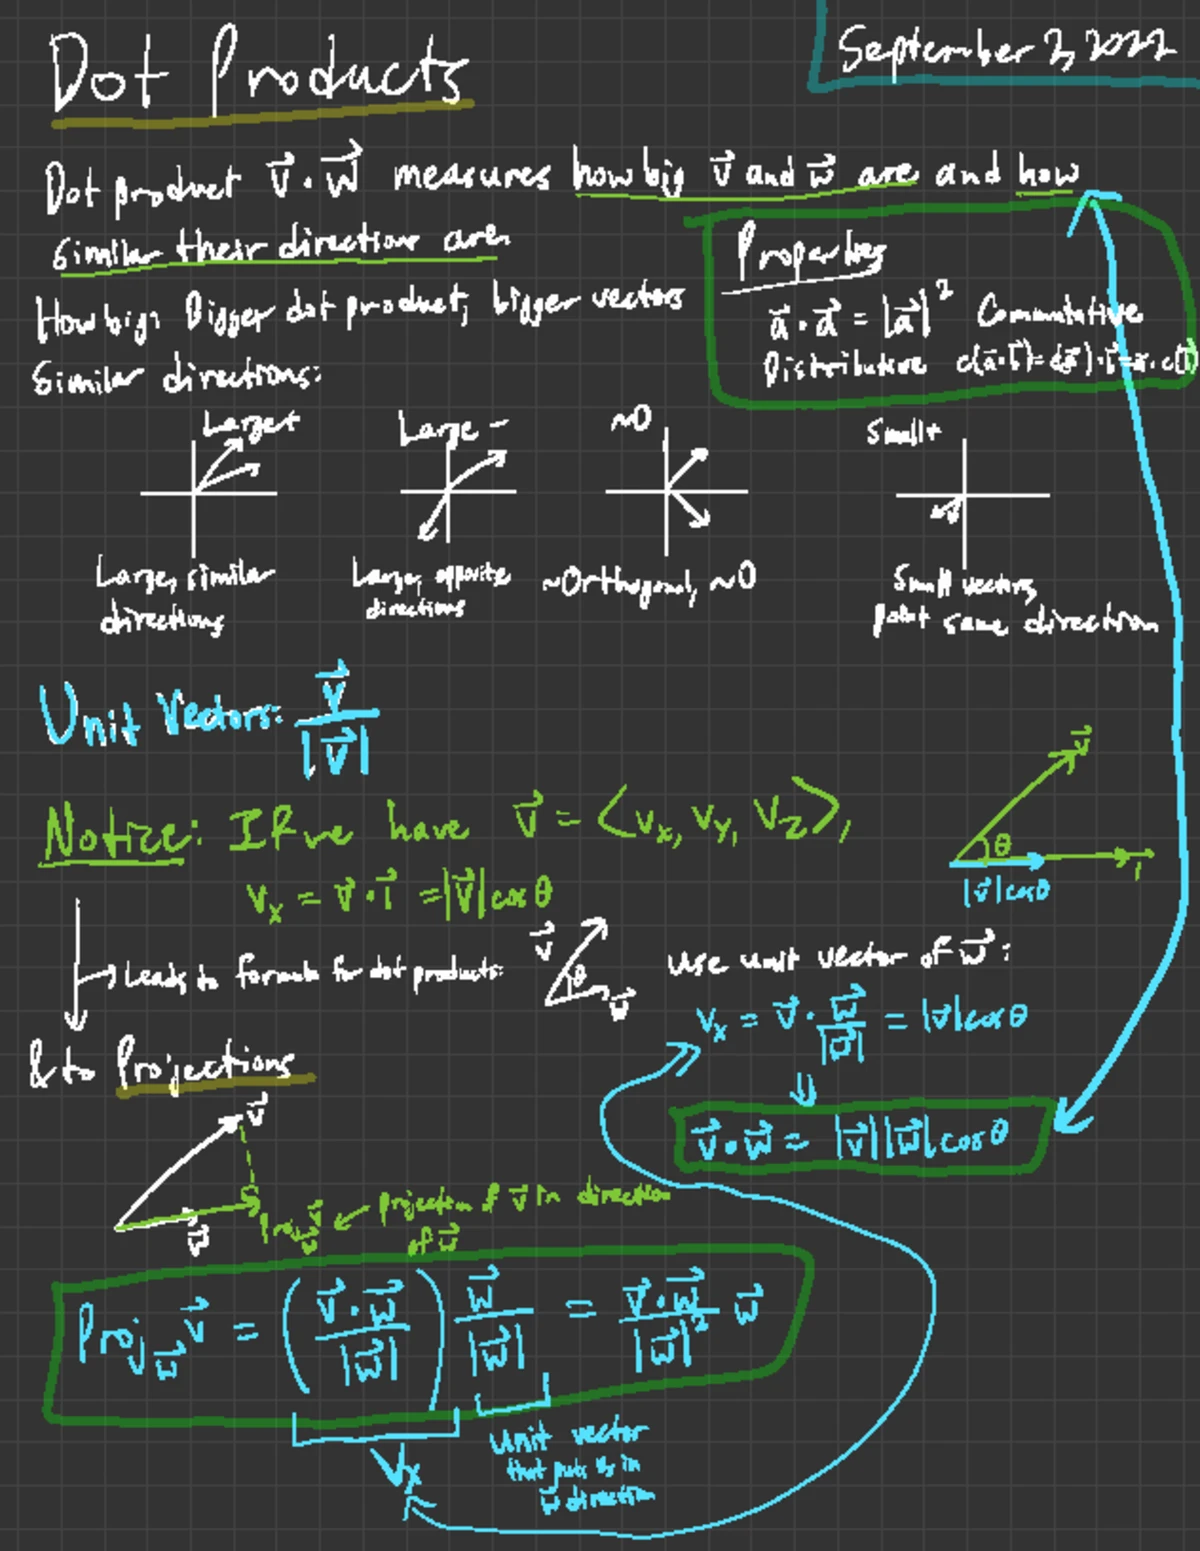 Dot Products
September 2, 2022
Dot product v⃗·w⃗ measures how big v⃗ and w⃗ are and how
similar their directions are
How big: Bigger dot product, bigger vectors
Similar directions:
Properties
a⃗·a⃗ = |a⃗|² Commutative
Distributive c(a⃗·b⃗)=(ca⃗)·b⃗=a⃗·c(b⃗)
Large+
Large -
~0
Small+
Large, similar
directions
Large, opposite
directions
~Orthogonal, ~0
Small vectors,
point same direction
Unit Vectors: v⃗/|v⃗|
Notice: If we have v⃗ = <vx, vy, vz>,
vx = v⃗·i⃗ = |v⃗|cosθ
v⃗
θ
i
|v⃗|cosθ
Leads to formula for dot products:
v⃗
θ
w⃗
Use unit vector of w⃗:
vx = v⃗·w⃗/|w⃗| = |v⃗|cosθ
⇓
v⃗·w⃗ = |v⃗||w⃗|cosθ
& to Projections
v⃗
w⃗
Proj_w⃗ v⃗ ← projection of v⃗ in direction
of w⃗
Proj_w⃗ v⃗ = (v⃗·w⃗/|w⃗|) w⃗/|w⃗| = v⃗·w⃗/|w⃗|² w⃗
vx
Unit vector
that puts vx in
w⃗ direction